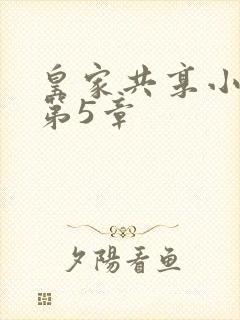 皇家共享小
第5章
夕陽看鱼